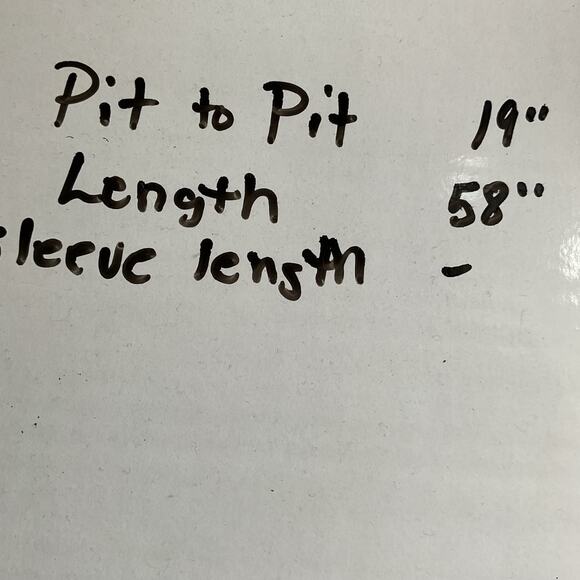 Pit to Pit 19"
Length 58"
Sleeve length -